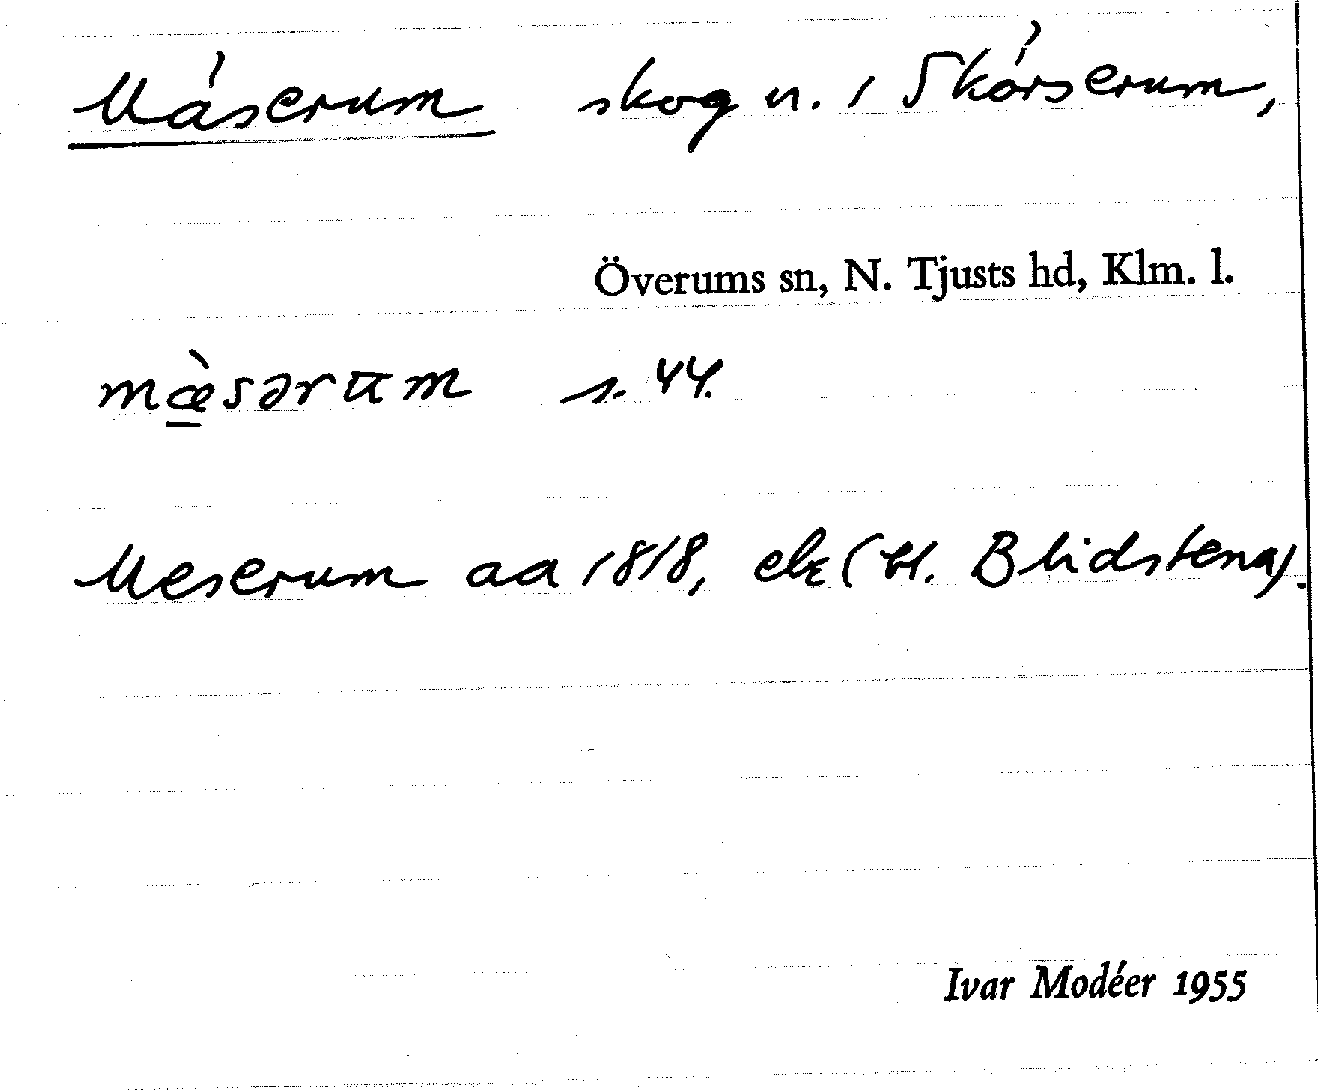 Måserum skog n. i Skårserum,
Överums sn, N. Tjusts hd, Klm. l.
mæ̀sərum s. 44.
Meserum aa 1818, ek (bl. Blidstena).
Ivar Modéer 1955